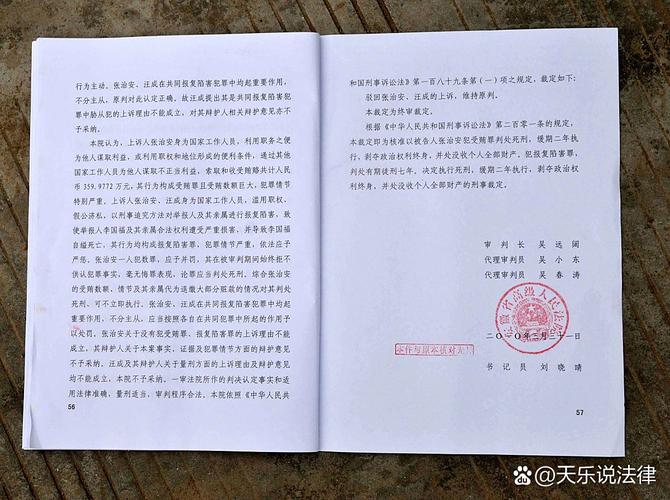 行为主动。张治安、汪成在共同报复陷害犯罪中均起重要作用，
不分主从，原判对此认定正确。故汪成提出其是共同报复陷害犯
罪中胁从犯的上诉理由不能成立，对其辩护人相关辩护意见亦不
予采纳。
本院认为，上诉人张治安身为国家工作人员，利用职务之便
为他人谋取利益，或利用职权和地位形成的便利条件，通过其他
国家工作人员为他人谋取不正当利益，索取和收受贿赂共计人民
币 359.9772 万元，其行为构成受贿罪且受贿数额巨大，犯罪情节
特别严重。上诉人张治安、汪成身为国家工作人员，滥用职权、
假公济私，以刑事追究方法对举报人及其亲属进行报复陷害，致
使举报人李国福及其亲属合法权利遭受严重损害，并导致李国福
自缢死亡，其行为均构成报复陷害罪，犯罪情节严重，依法应予
严惩。张治安一人犯数罪，应予并罚，其在被审判期间始终拒不
供认犯罪事实，毫无悔罪表现，论罪应当判处死刑。综合张治安
的受贿数额、情节及其亲属代为退缴大部分赃款的情况对其判处
死刑，可不立即执行。张治安、汪成在共同报复陷害犯罪中均起
重要作用，不分主从，应当按照各自在共同犯罪中所起的作用予
以处罚。张治安关于没有犯受贿罪、报复陷害罪的上诉理由不能
成立，其辩护人关于本案事实、证据及犯罪情节方面的辩护意见
不予采纳。汪成及其辩护人关于量刑方面的上诉理由及辩护意见
均不能成立，本院不予采纳。一审法院所作的判决认定事实和适
用法律准确，量刑适当，审判程序合法。本院依照《中华人民共
56
和国刑事诉讼法》第一百八十九条第（一）项之规定，裁定如下：
驳回张治安、汪成的上诉，维持原判。
本裁定为终审裁定。
根据《中华人民共和国刑事诉讼法》第二百零一条的规定，
本裁定即为核准以被告人张治安犯受贿罪判处死刑，缓期二年执
行，剥夺政治权利终身，并处没收个人全部财产。犯报复陷害罪，
判处有期徒刑七年。决定执行死刑，缓期二年执行，剥夺政治权
利终身，并处没收个人全部财产的刑事裁定。
审判长 吴远阔
代理审判员 吴小东
代理审判员 吴春涛
安徽省高级人民法院
二〇一〇年三月三十一日
本件与原本核对无异
书记员 刘晓晴
57
@天乐说法律